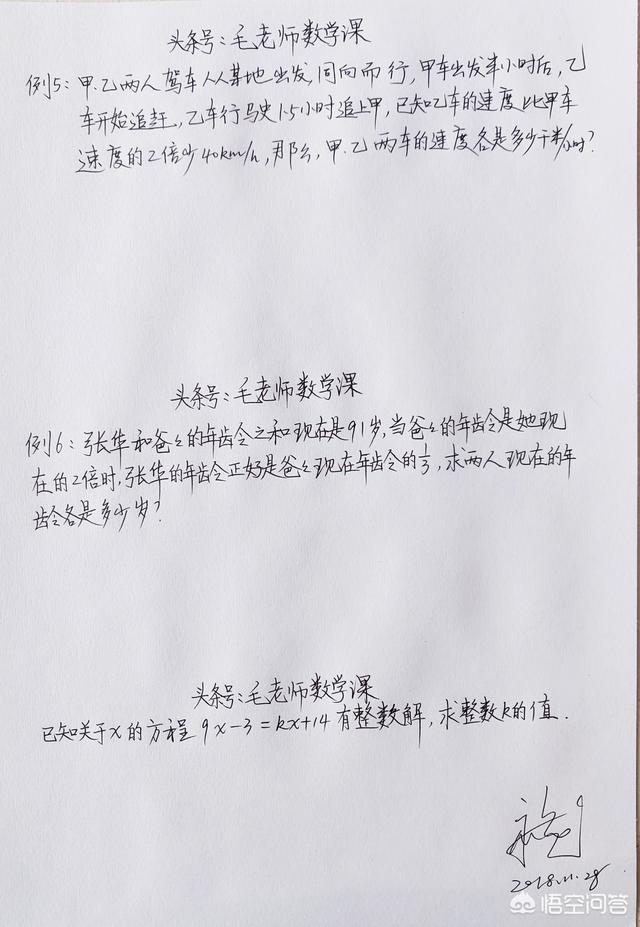 头条号:毛老师数学课
例5:甲.乙两人驾车从某地出发,同向而行,甲车出发半小时后,乙
车开始追赶,乙车行驶1.5小时追上甲,已知乙车的速度比甲车
速度的2倍少40km/h,那么,甲.乙两车的速度各是多少千米/小时?
头条号:毛老师数学课
例6:张华和爸爸的年龄之和现在是91岁,当爸爸的年龄是她现
在的2倍时,张华的年龄正好是爸爸现在年龄的1/3,求两人现在的年
龄各是多少岁?
头条号:毛老师数学课
已知关于x的方程 9x-3=kx+14有整数解,求整数k的值.
2018.11.28
悟空问答